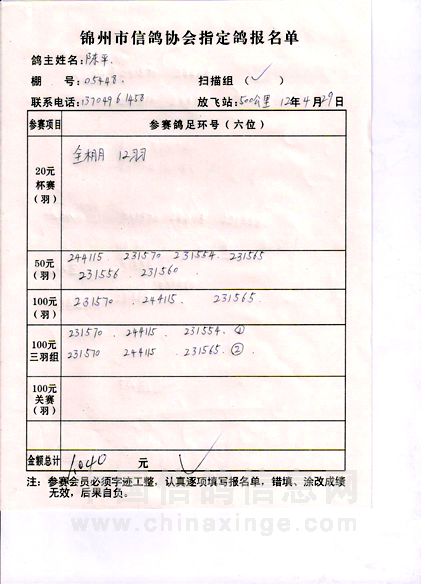 锦州市信鸽协会指定鸽报名单
鸽主姓名:陈平.
棚 号:05448. 扫描组(✓)
联系电话:13704961458 放飞站:500公里 12年4月29日
参赛项目 参赛鸽足环号(六位)
20元
杯赛
(羽)
全棚 12羽
50元
(羽)
244115 231570 231554. 231565
231556 . 231560 .
100元
(羽)
231570 . 244115 . 231565.
100元
三羽组
231570 . 244115 . 231554. ①
231570 244115 . 231565. ②.
100元
关赛
(羽)
金额总计 1040 元
注:参赛会员必须字迹工整,认真逐项填写报名单,错填、涂改成绩
无效,后果自负。
中国信鸽信息网
www.chinaxinge.com